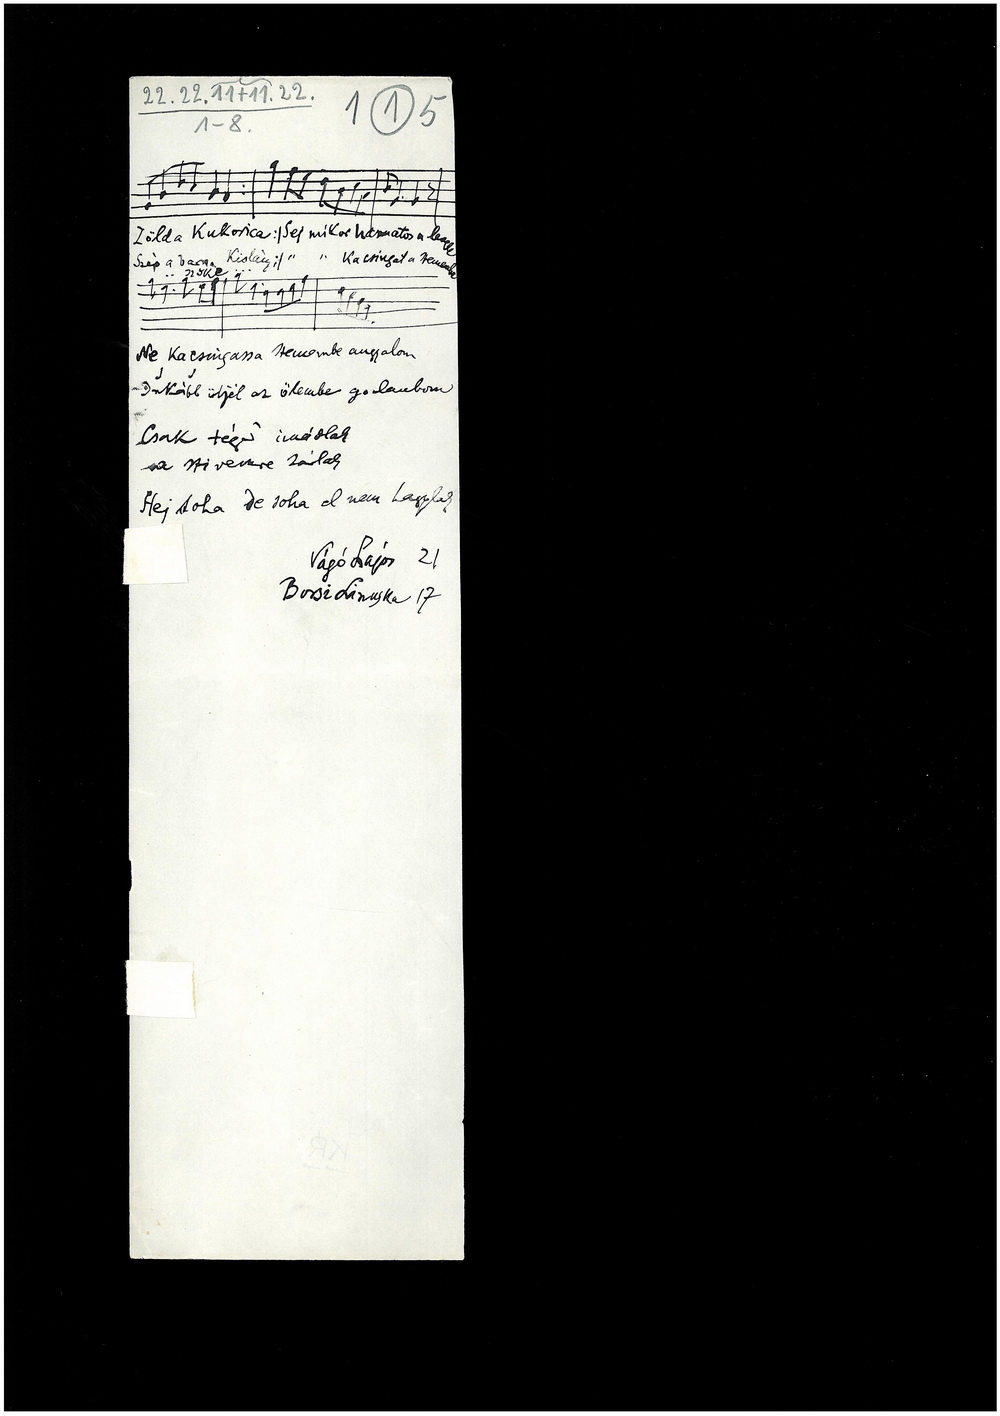 22. 22. 11+11. 22.
1-8.
1 1 5
Zöld a Kukorica :/ Sej mikor harmatos a
Szép a barna Kislány :/ " " Kacsingat a szemembe
szőke
Ne Kacsingassa szemembe angyalom
Inkább üljél az ölembe galambom
Csak téged imádlak
a szivemre zárlak
Hej soha De soha el nem hagylak
Vágó Lajos 21
17